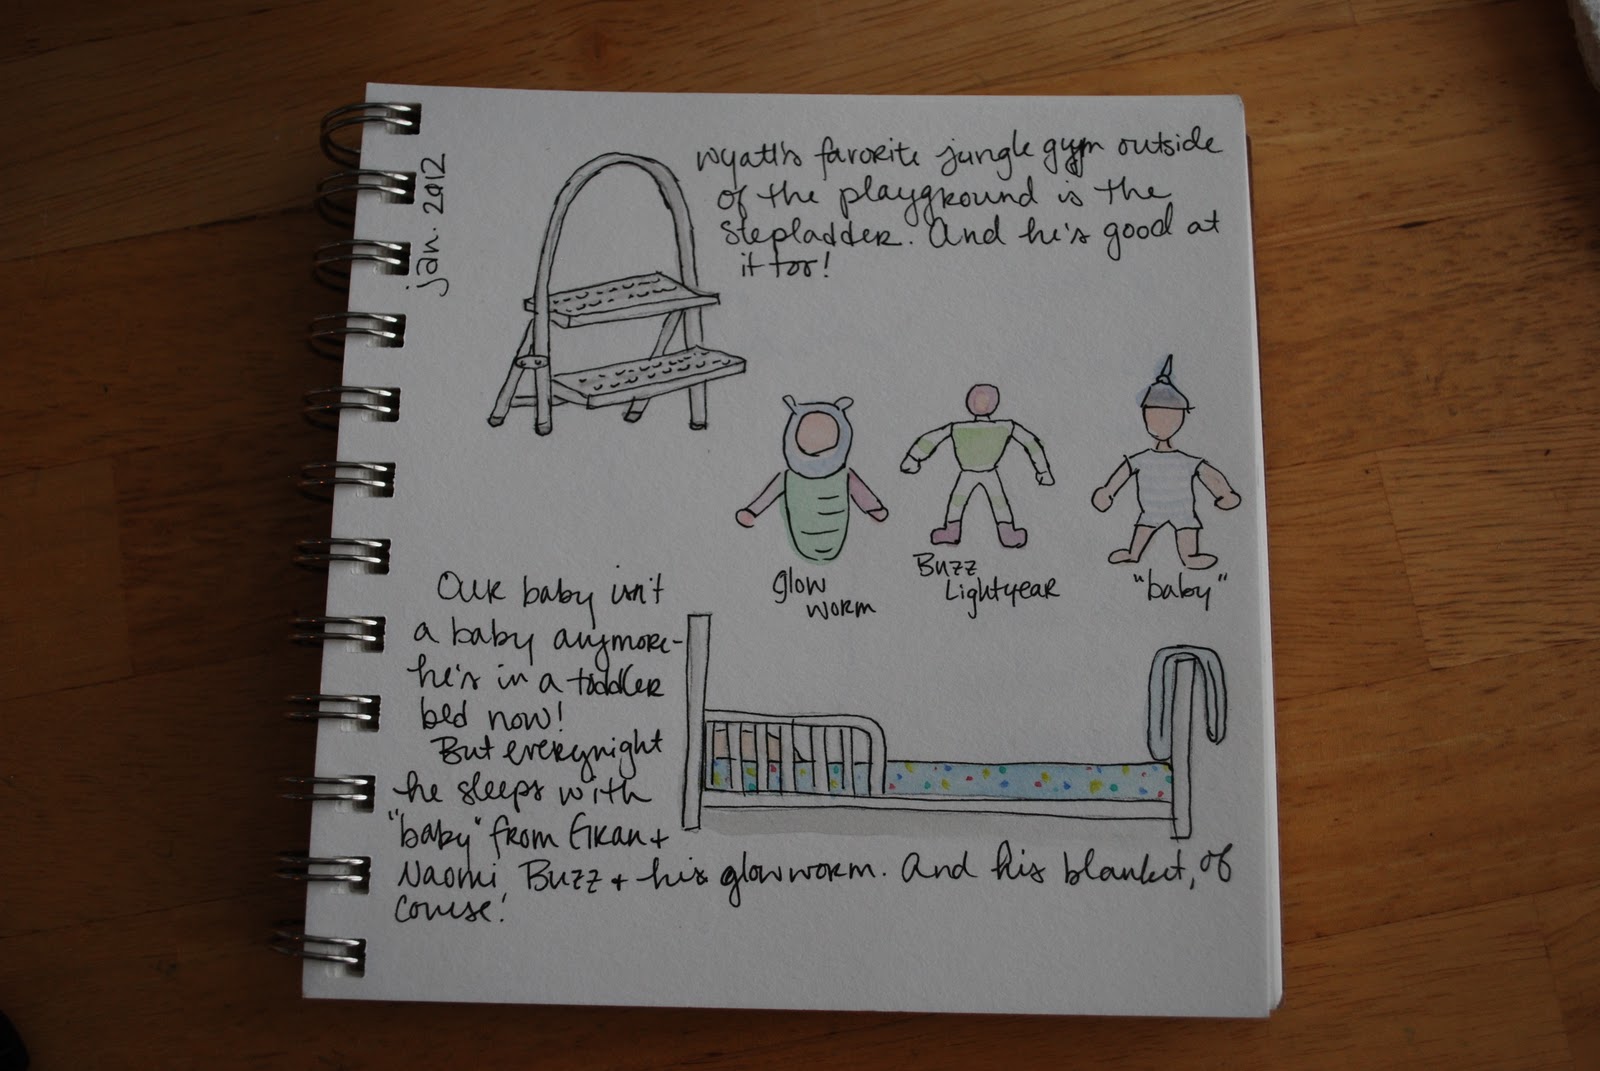 jan. 2012
Wyatt's favorite jungle gym outside
of the playground is the
stepladder. And he's good at
it too!
glow
worm
Buzz
Lightyear
"baby"
Our baby isn't
a baby anymore-
he's in a toddler
bed now!
But everynight
he sleeps with
"baby" from Gran +
Naomi, Buzz + his glowworm. And his blanket, of
course!